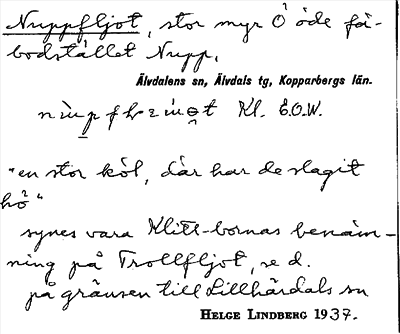 Nuppfljot, stor myr Ö öde fä-
bodstället Nupp,
Älvdalens sn, Älvdals tg, Kopparbergs län.
Kl. E.O.W.
"en stor köl, där har de slagit
hö"
synes vara Klitt-bornas benäm-
ning på Trollfljot, se d.
på gränsen till Lillhärdals sn
HELGE LINDBERG 1937.